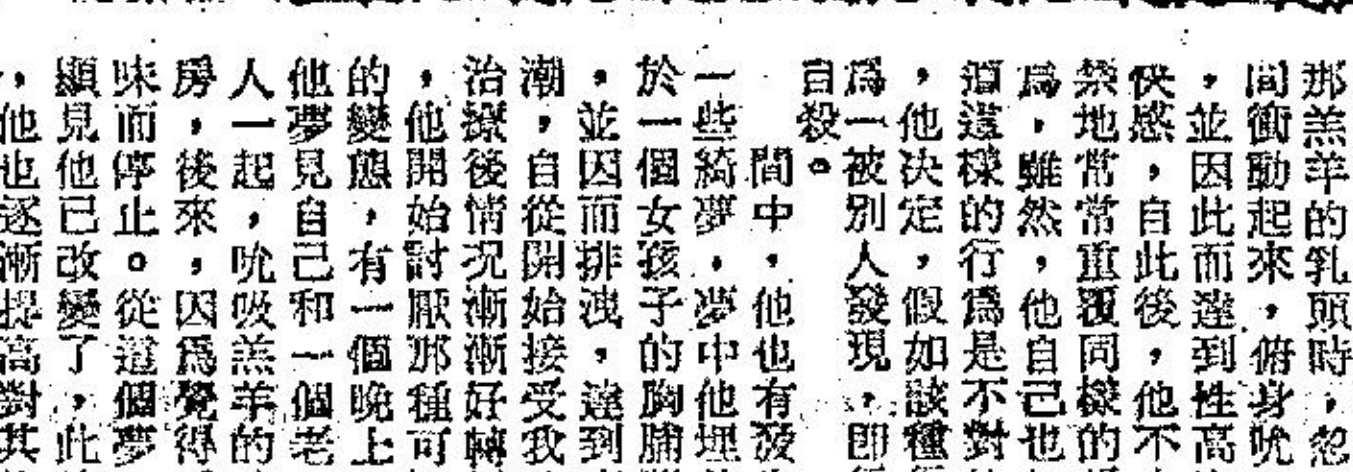 那羔羊的乳頭時，忽
間衝動起來，俯身吮
，並因此而達到性高
快感，自此後，他不
禁地常常重覆同樣的
爲，雖然，他自己也
道這樣的行爲是不對
，他決定，假如該種
爲一被別人發現，即
自殺。
間中，他也有發
一些綺夢，夢中他埋
於一個女孩子的胸脯
，並因而排洩，達到
潮，自從開始接受我
治療後情況漸漸好轉
，他開始討厭那種可
的變態，有一個晚上
他夢見自己和一個老
人一起，吮吸羔羊的
房，後來，因爲覺得
味而停止。從這個夢
顯見他已改變了，此
，他也逐漸提高對其